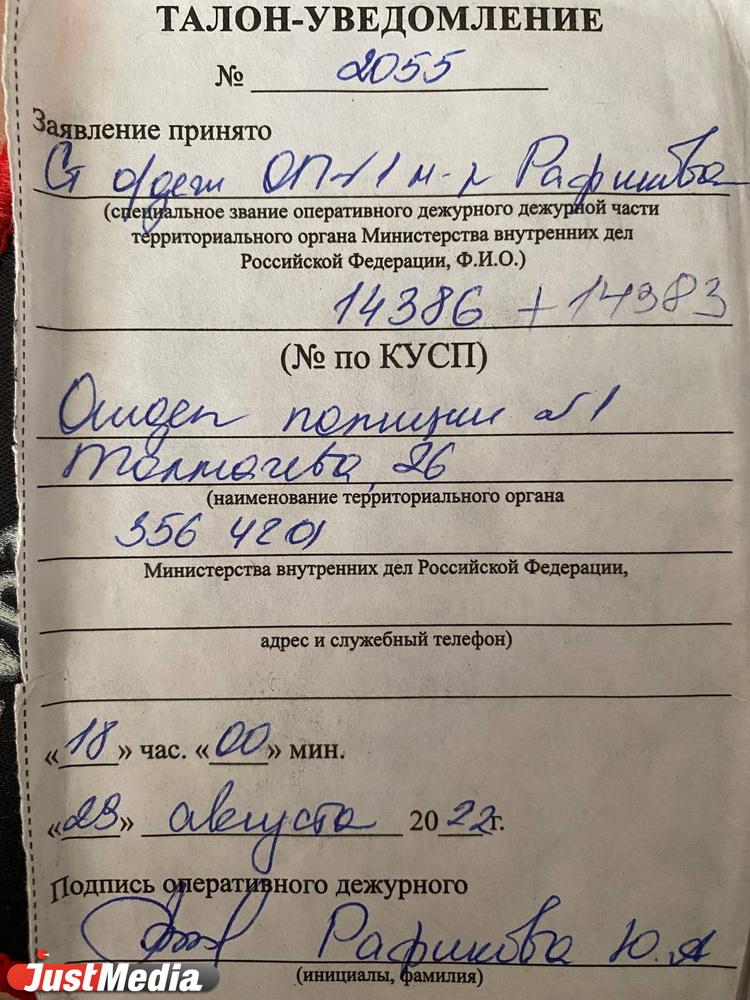 ТАЛОН-УВЕДОМЛЕНИЕ
№ 2055
Заявление принято
Ст о/деж ОП-№1 м-р Рафикова
(специальное звание оперативного дежурного дежурной части
территориального органа Министерства внутренних дел
Российской Федерации, Ф.И.О.)
14386 + 14383
(№ по КУСП)
Отдел полиции №1
Толмачева, 26
(наименование территориального органа
356 4201
Министерства внутренних дел Российской Федерации,
адрес и служебный телефон)
«18» час. «00» мин.
«29» августа 2022г.
Подпись оперативного дежурного
Рафикова Ю.А
(инициалы, фамилия)
JustMedia